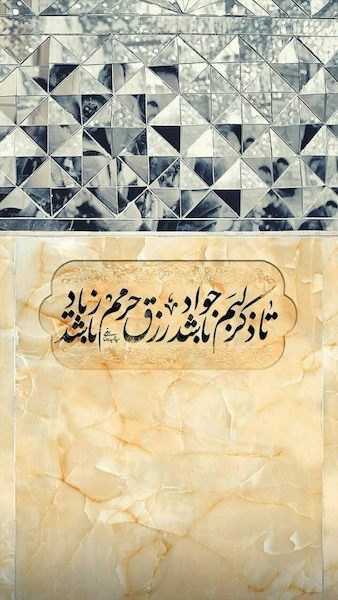 تا ذکر لبم جواد باشد رزق حرمم زیاد باشد